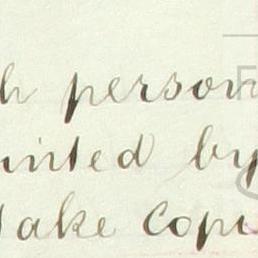 h person
inted by
take copi